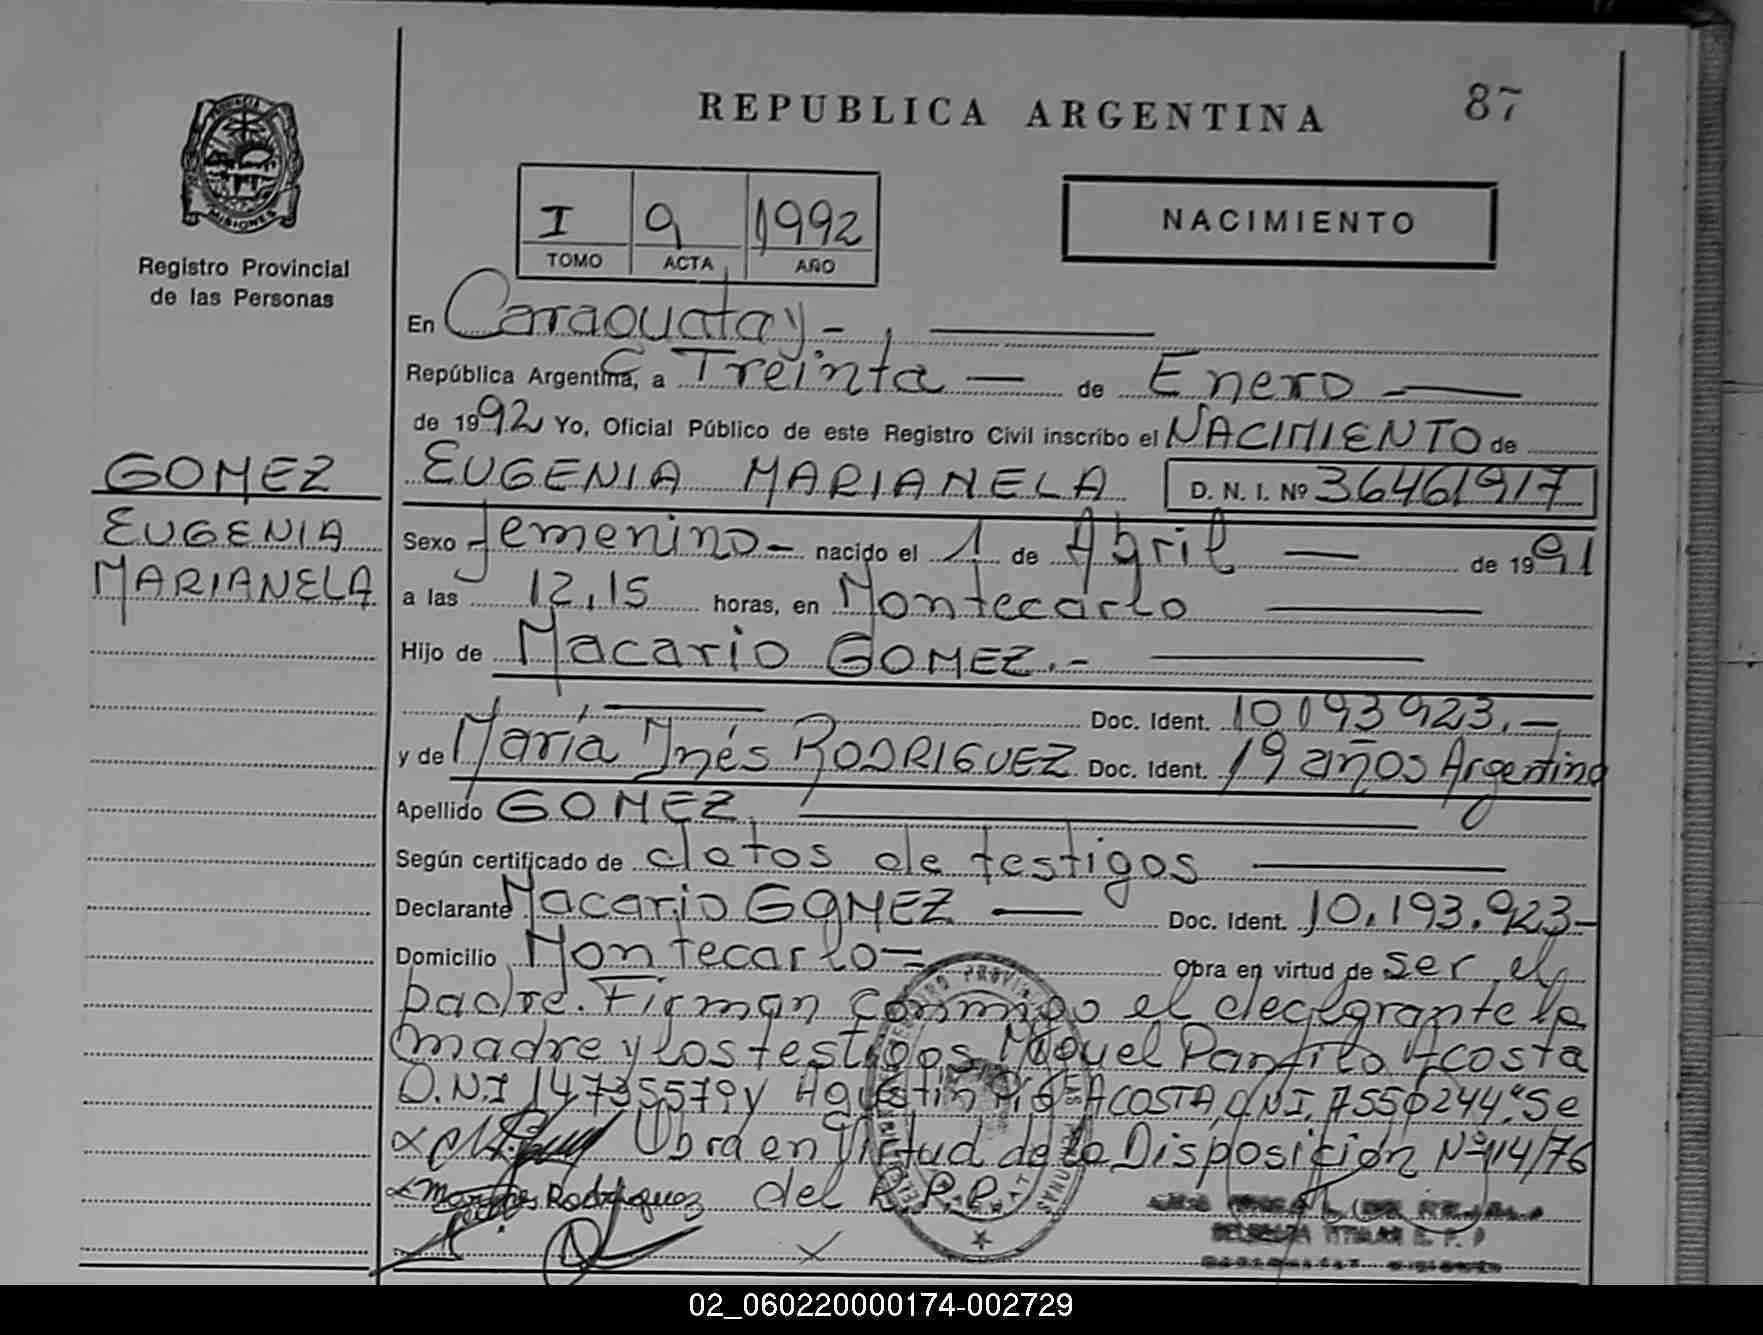 REPUBLICA ARGENTINA
87
PROVINCIA
MISIONES
Registro Provincial
de las Personas
I 9 1992
TOMO ACTA AÑO
NACIMIENTO
En Caraguatay -,
República Argentina, a Treinta — de Enero —
de 1992 Yo, Oficial Público de este Registro Civil inscribo el NACIMIENTO de
GOMEZ
EUGENIA MARIANELA D. N. I. Nº 36461917
EUGENIA
MARIANELA
Sexo femenino - nacido el 1 de Abril — de 1991
a las 12,15 horas, en Montecarlo —
Hijo de Macario GOMEZ.-
Doc. Ident. 10193923.-
y de María Inés RODRIGUEZ Doc. Ident. 19 años Argentina
Apellido GOMEZ
Según certificado de datos de testigos —
Declarante Macario GOMEZ — Doc. Ident. 10.193.923-
Domicilio Montecarlo - Obra en virtud de ser el
padre. Firman conmigo el declarante la
madre y los testigos Miguel Panfilo Acosta
D.N.I 14735579 y Agustin ACOSTA, DNI, 7550244, "Se
Obra en Virtud de la Disposición Nº 114/76
Rodriguez del R.P.P.
DELEGADA TITULAR R. P. P
02_060220000174-002729